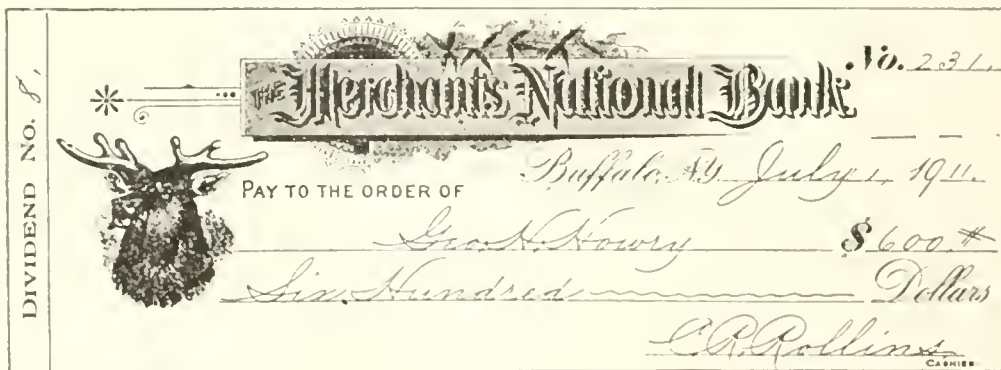 DIVIDEND NO. 8,
THE Merchants National Bank No. 231.
Buffalo, N.Y. July 1, 1911.
PAY TO THE ORDER OF
Geo. H. Howry $600.#
Six Hundred Dollars
C. R. Rollins,
CASHIER